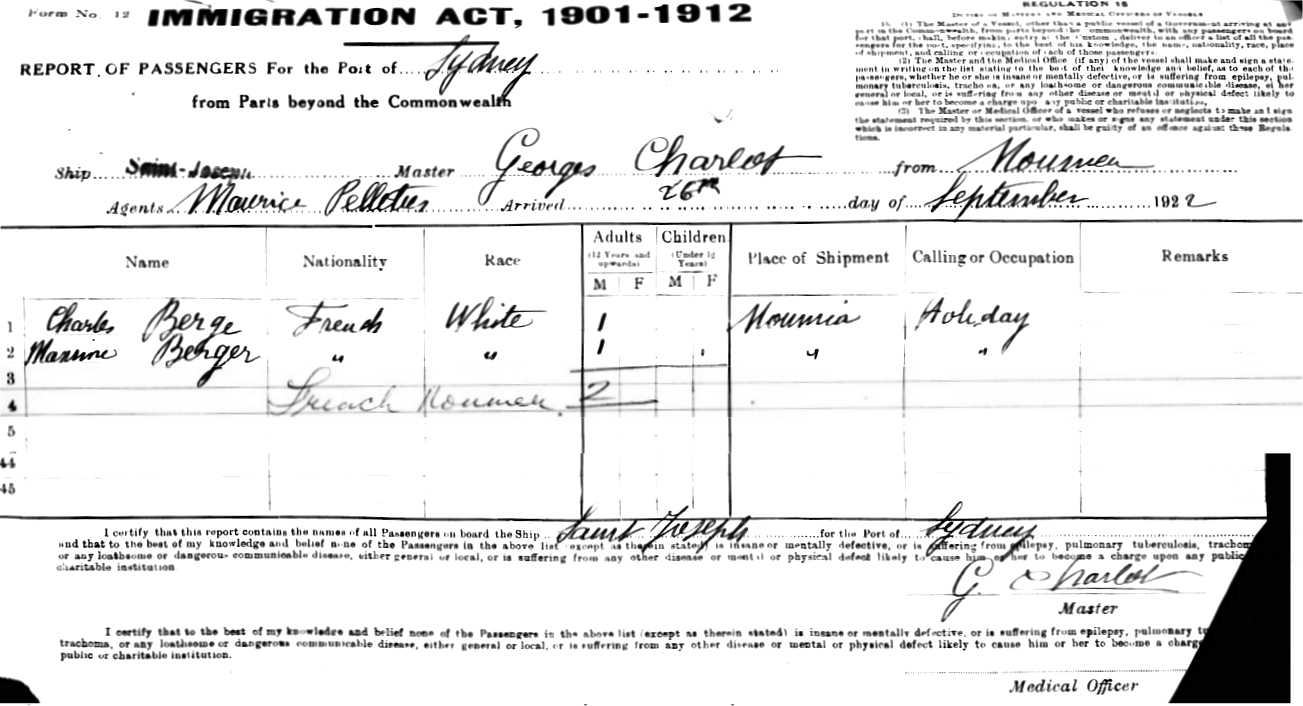 Form No. 12
IMMIGRATION ACT, 1901-1912
REPORT OF PASSENGERS For the Port of Sydney
from Parts beyond the Commonwealth
REGULATION 15
DUTIES OF MASTERS AND MEDICAL OFFICERS OF VESSELS
(1) The Master of a Vessel, other than a public vessel of a Government arriving at any
port in the Commonwealth, from parts beyond the Commonwealth, with any passengers on board
for that port, shall, before making entry at the Customs, deliver to an officer a list of all the pas-
sengers for the port, specifying, to the best of his knowledge, the name, nationality, race, place
of shipment, and calling or occupation of each of those passengers.
(2) The Master and the Medical Office (if any) of the vessel shall make and sign a state-
ment in writing on the list stating to the best of their knowledge and belief, as to each of the
passengers, whether he or she is insane or mentally defective, or is suffering from epilepsy, pul-
monary tuberculosis, trachoma, or any loathsome or dangerous communicable disease, either
general or local, or is suffering from any other disease or mental or physical defect likely to
cause him or her to become a charge upon any public or charitable institution.
(3) The Master or Medical Officer of a vessel who refuses or neglects to make and sign
the statement required by this section, or who makes or signs any statement under this section
which is incorrect in any material particular, shall be guilty of an offence against these Regula-
tions.
Ship Saint-Joseph Master Georges Charlot from Noumea
Agents Maurice Pelletier Arrived 26th day of September 1922
Name Nationality Race Adults (12 Years and upwards) M F Children (Under 12 Years) M F Place of Shipment Calling or Occupation Remarks
1 Charles Berge French White 1 Noumia Holiday
2 Maxsine Berger " " 1 " "
3
4 French Noumea 2
5
44
45
I certify that this report contains the names of all Passengers on board the Ship Saint Joseph for the Port of Sydney
and that to the best of my knowledge and belief none of the Passengers in the above list (except as therein stated) is insane or mentally defective, or is suffering from epilepsy, pulmonary tuberculosis, trachom
or any loathsome or dangerous communicable disease, either general or local, or is suffering from any other disease or mental or physical defect likely to cause him or her to become a charge upon any public
charitable institution
G. Charlot
Master
I certify that to the best of my knowledge and belief none of the Passengers in the above list (except as therein stated) is insane or mentally defective, or is suffering from epilepsy, pulmonary tu
trachoma, or any loathsome or dangerous communicable disease, either general or local, or is suffering from any other disease or mental or physical defect likely to cause him or her to become a charge
public or charitable institution.
Medical Officer